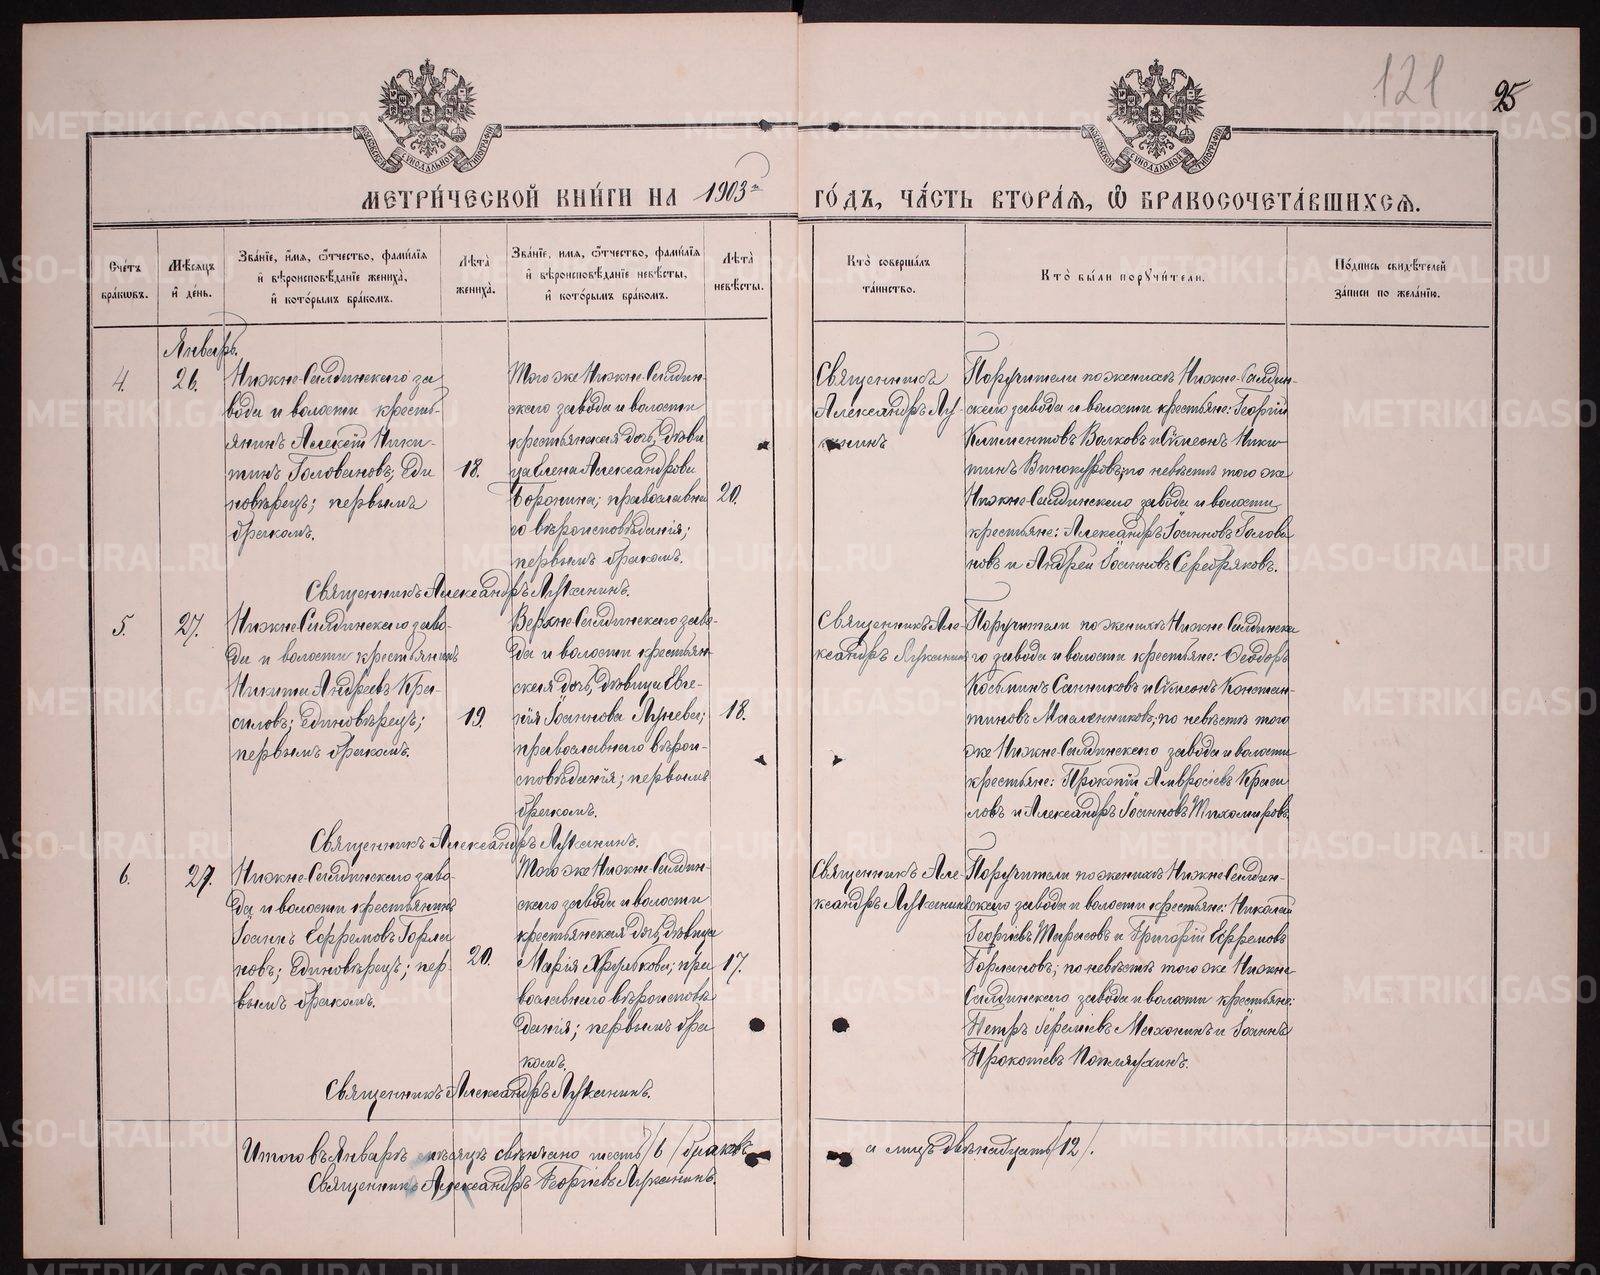 121
25
МЕТРИ́ЧЕСКОЙ КНИ́ГИ НА 1903й ГО́ДЪ, ЧА́СТЬ ВТОРА́Я, Ѡ БРАКОСОЧЕТА́ВШИХСЯ.
Сче́тъ бра́ковъ.
Мѣ́сяцъ и де́нь.
Зва́нїе, и́мя, ѻ́тчество, фами́лїя
и҆ вѣроисповѣ́данїе жениха̀,
и҆ кото́рымъ бра́комъ.
Лѣ́та̀
жениха̀.
Зва́нїе, и́мя, ѻ́тчество, фами́лїя
и҆ вѣроисповѣ́данїе невѣ́сты,
и҆ кото́рымъ бра́комъ.
Лѣ́та̀
невѣ́сты.
Кто̀ соверша́лъ
та́инство.
Кто̀ бы́ли поручи́тели.
По́дпись свидѣ́телей
за́писи по жела́нїю.
Январь.
4.
26.
Нижне-Салдинскаго за
вода и волости кресть-
янинъ Алексѣй Ники-
тинъ Головановъ; Еди
новѣрецъ; первымъ
бракомъ.
18.
Того же Нижне-Салдин-
скаго завода и волости
крестьянская дочь, дѣви
ца Елена Александрова
Воронина; православна
го вѣроисповѣданія;
первымъ бракомъ.
20.
Священникъ
Александръ Лу-
канинъ
Поручители по женихѣ Нижне-Салдин-
скаго завода и волости крестьяне: Георгій
Климентовъ Волковъ и Сѵмеонъ Ники
тинъ Винокуровъ; по невѣстѣ того же
Нижне-Салдинскаго завода и волости
крестьяне: Александръ Іоанновъ Голова
новъ и Андрей Іоанновъ Серебряковъ.
Священникъ Александръ Луканинъ.
5.
27.
Нижне-Салдинскаго заво-
да и волости крестьянинъ
Никита Андреевъ Кра-
силовъ; Единовѣрецъ;
первымъ бракомъ.
19.
Верхне-Салдинскаго заво-
да и волости крестьян-
ская дочь, дѣвица Евге-
нія Іоаннова Лунева;
православнаго вѣрои-
сповѣданія; первымъ
бракомъ.
18.
Священникъ Але-
ксандръ Луканинъ
Поручители по женихѣ Нижне-Салдинска
го завода и волости крестьяне: Ѳеодоръ
Косьминъ Санниковъ и Сѵмеонъ Констан-
тиновъ Масленниковъ; по невѣстѣ того
же Нижне-Салдинскаго завода и волости
крестьяне: Прокопій Амвросіевъ Краси
ловъ и Александръ Іоанновъ Тихомировъ.
Священникъ Александръ Луканинъ.
6.
27.
Нижне-Салдинскаго заво-
да и волости крестьянинъ
Іоаннъ Ефремовъ Горма
новъ; Единовѣрецъ; пер-
вымъ бракомъ.
20.
Того же Нижне-Салдин-
скаго завода и волости
крестьянская дочь, дѣвица
Марія Хрулькова; пра
вославнаго вѣроисповѣ
данія; первымъ бра
комъ.
17.
Священникъ Але-
ксандръ Луканинъ
Поручители по женихѣ Нижне-Салдин-
скаго завода и волости крестьяне: Николай
Георгіевъ Тарасовъ и Григорій Ефремовъ
Гормановъ; по невѣстѣ того же Нижне
Салдинскаго завода и волости крестьяне:
Петръ Іереміевъ Маханинъ и Іоаннъ
Прокопіевъ Поплаухинъ.
Священникъ Александръ Луканинъ.
Итого въ Январѣ мѣсяцѣ свѣнчано шесть /6/ браковъ а лицъ двѣнадцать /12/.
Священникъ Александръ Георгіевъ Луканинъ.
METRIKI.GASO-URAL.RU